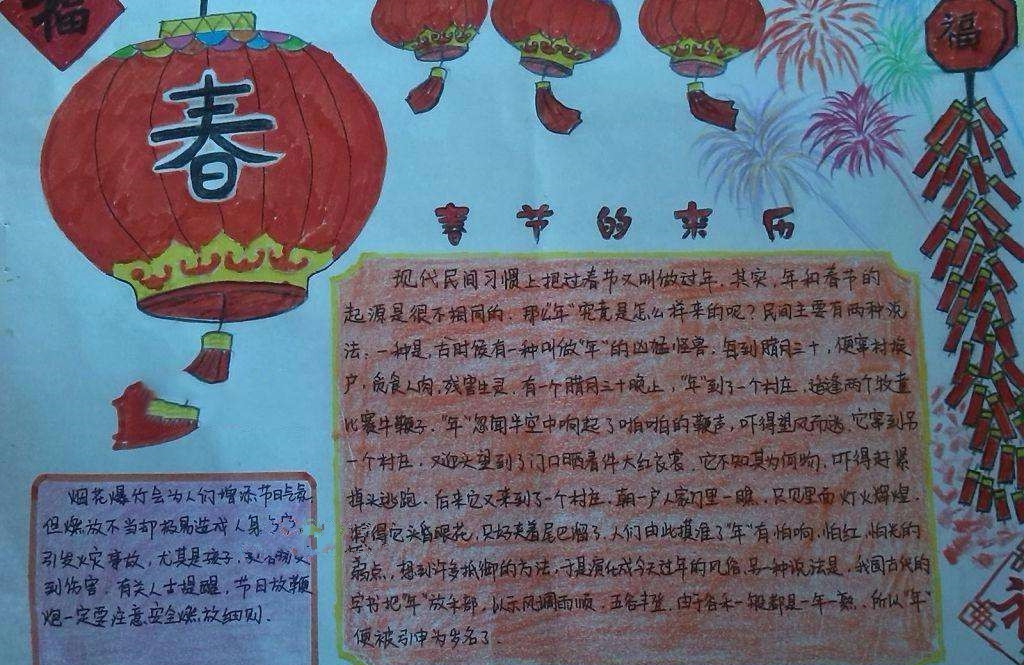 福
春
福
春节的来历
现代民间习惯上把过春节又叫做过年。其实，年和春节的
起源是很不相同的。那么"年"究竟是怎么样来的呢？民间主要有两种说
法：一种是，古时候有一种叫做"年"的凶猛怪兽，每到腊月三十，便窜村挨
户，觅食人肉，残害生灵。有一个腊月三十晚上，"年"到了一个村庄，适逢两个牧童
比赛牛鞭子。"年"忽闻半空中响起了啪啪的鞭声，吓得望风而逃。它窜到另
一个村庄，又迎头望到了门口晒着件大红衣裳，它不知其为何物，吓得赶紧
掉头逃跑。后来它又来到了一个村庄，朝一户人家门里一瞧，只见里面灯火辉煌，
得它头昏眼花，只好夹着尾巴溜了。人们由此摸准了"年"有怕响，怕红，怕光的
弱点，想到许多抵御的方法，于是演化成今天过年的风俗。另一种说法是，我国古代的
字书把"年"放禾部，以示风调雨顺，五谷丰登。由于谷禾一般都是一年一熟。所以"年"
便被引申为岁名了。
烟花爆竹会为人们增添节日气氛
但燃放不当却极易造成人身
引发火灾事故，尤其是孩子，
到伤害。有关人士提醒，节日放鞭
炮一定要注意安全燃放细则.